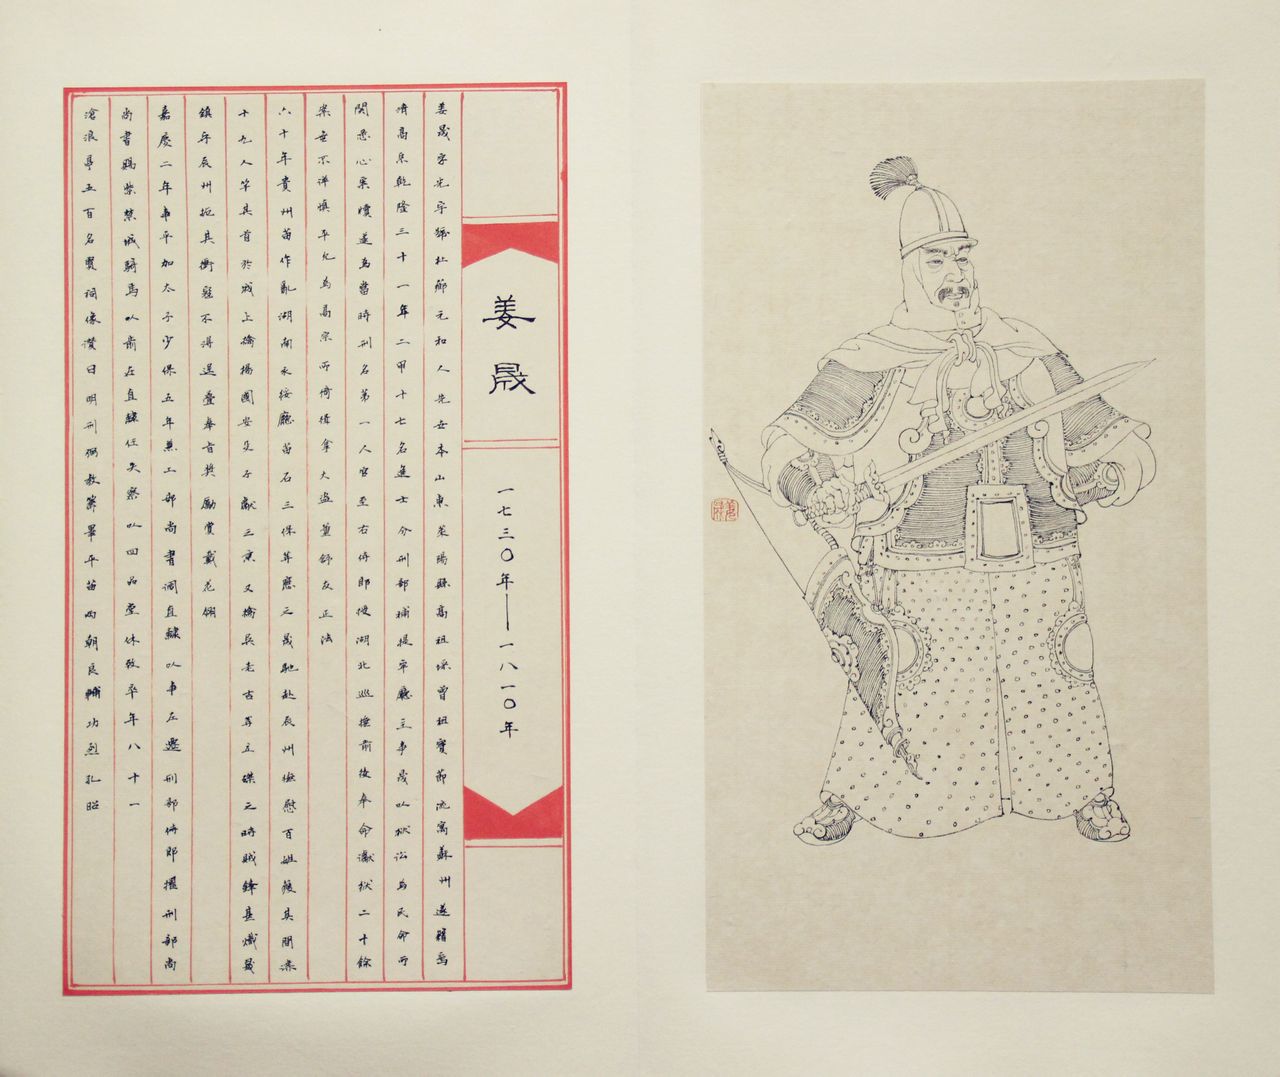 姜晟
一七三〇年——一八一〇年
姜晟字光宇號杜薌元和人先世本山東萊陽縣高祖埰曾祖實節流寓蘇州遂籍焉
晟高宗乾隆三十一年二甲十七名進士分刑部補提牢廳主事晟以獄訟為民命所
關悉心案牘遂為當時刑名第一人官至右侍郎授湖北巡撫前後奉命讞獄二十餘
案無不詳慎平允為高宗所倚緝拿大盜 正法
六十年貴州苗作亂湖南永綏廳苗石三保等應之晟馳赴辰州撫慰百姓獲其間諜
十九人竿其首於城上擒楊國安父子獻之京又擒吳老古等立磔之時賊鋒甚熾晟
鎮守辰州扼其衝寇不得逞疊奉旨獎勵賞戴花翎
嘉慶二年事平加太子少保五年兼工部尚書調直隸以事左遷刑部侍郎擢刑部尚
尚書賜紫禁城騎馬以前在直隸任失察以四品堂休致卒年八十一
滄浪亭五百名賢祠像讚曰明刑弼教籌畢平苗兩朝良輔功烈孔昭